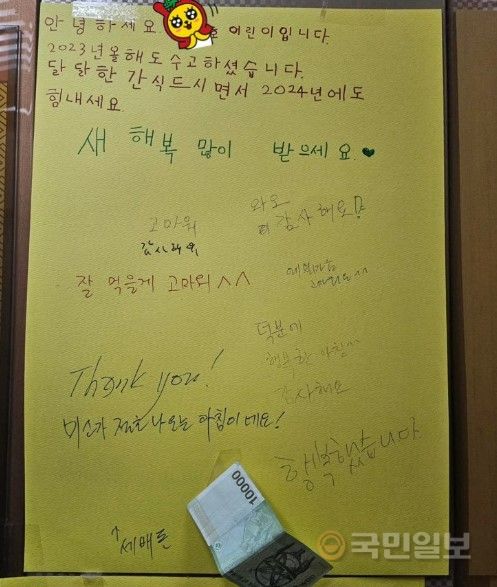 안녕하세요 호 어린이입니다.
2023년 올해도 수고하셨습니다.
달달한 간식드시면서 2024년에도
힘내세요.
새 해복 많이 받으세요.♥
고마워
감사해요
와우
감사해요!
잘 먹을게 고마워^^
고마워요^^
덕분에
행복한 아침
감사해요
Thank you!
미소가 절로 나오는 아침이네요!
행복했습니다
↑
세배돈
10000
국민일보